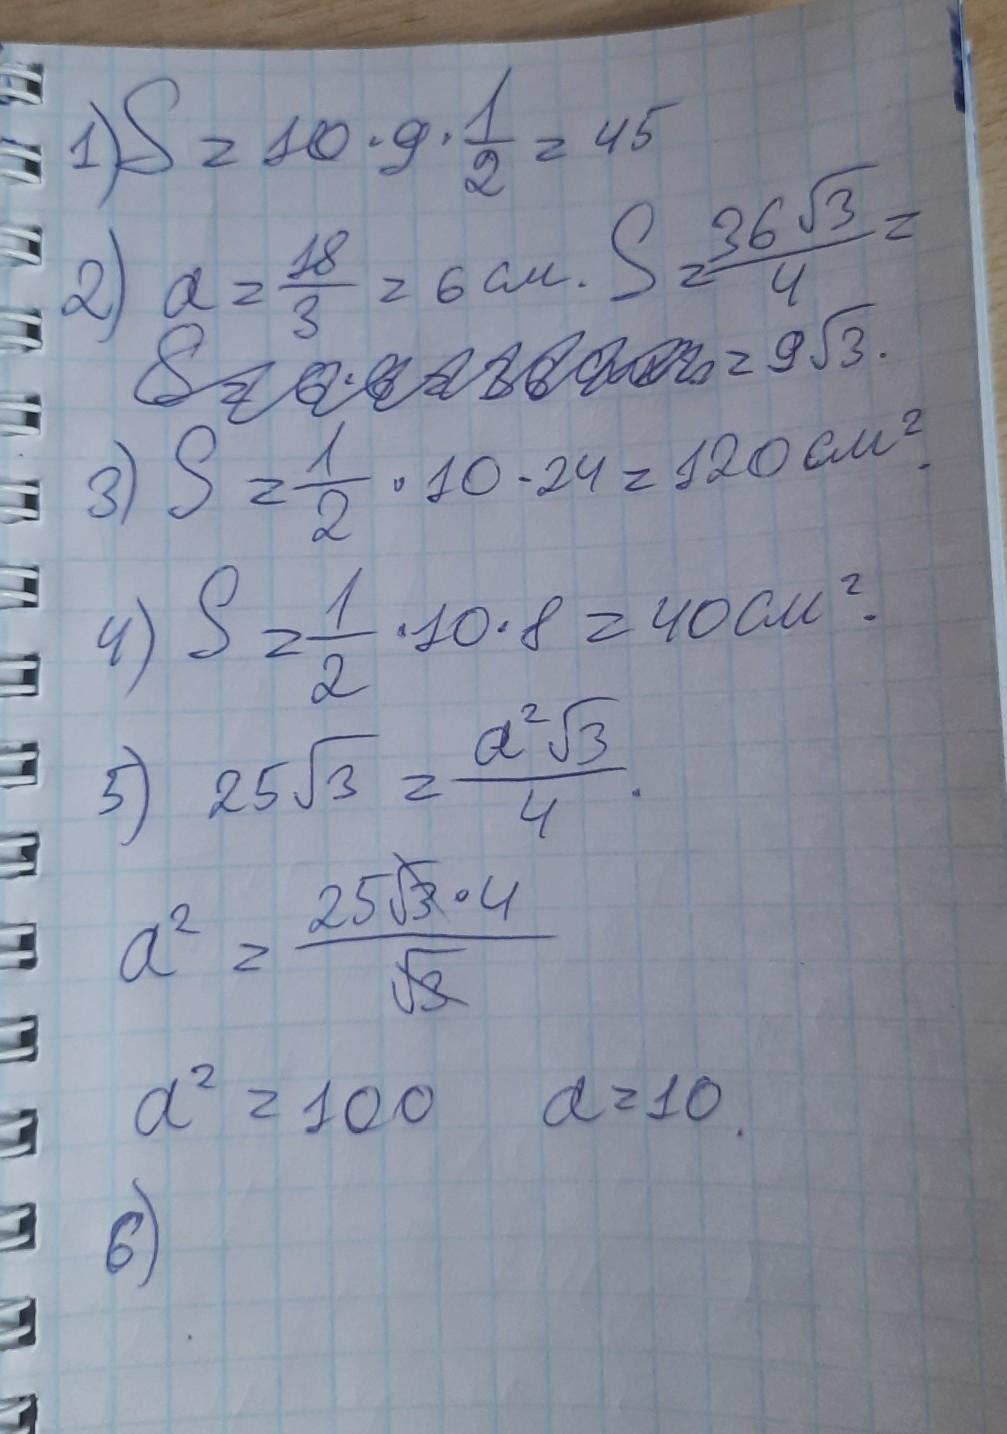 1) S = 10 · 9 · 1/2 = 45
2) a = 18/3 = 6 см. S = 36√3/4 =
= 9√3.
3) S = 1/2 · 10 · 24 = 120 см².
4) S = 1/2 · 10 · 8 = 40 см².
5) 25√3 = a²√3/4.
a² = 25√3 · 4/√3
a² = 100 a = 10.
6)